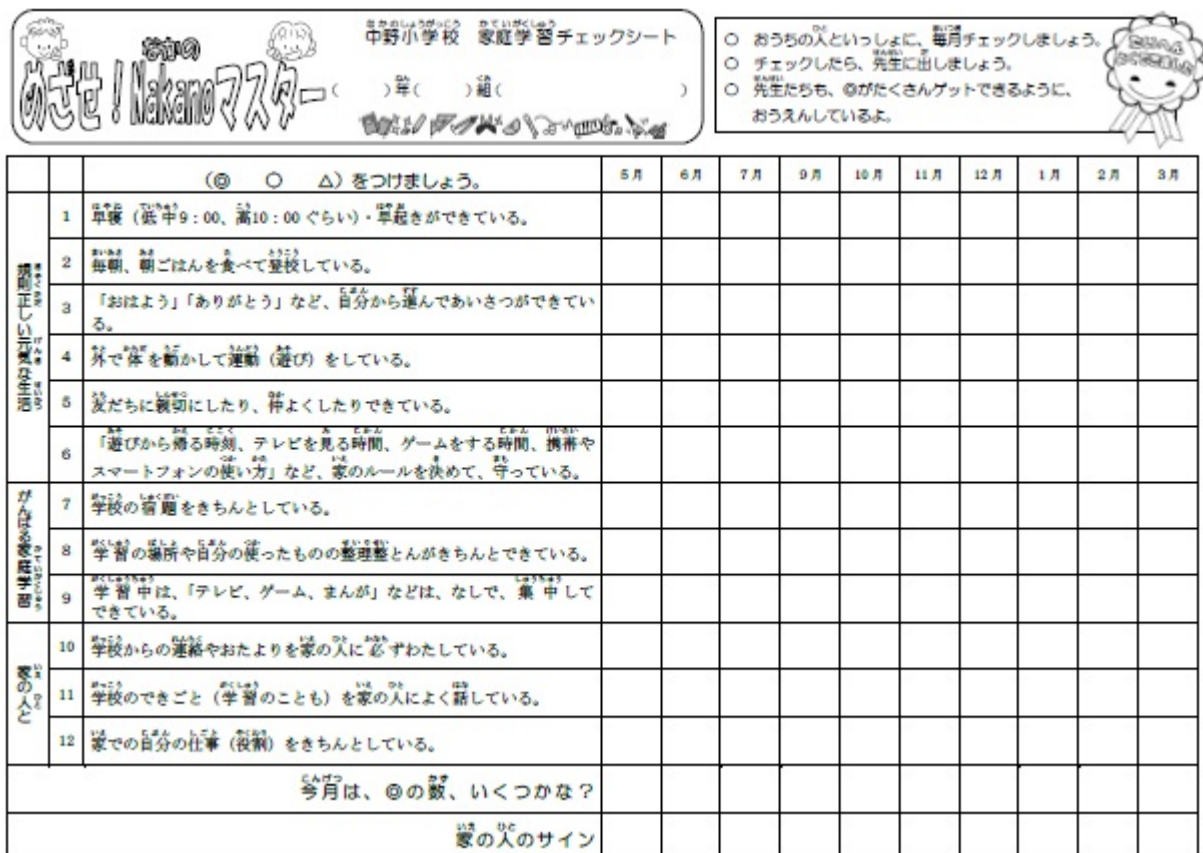 中野小学校 家庭学習チェックシート
めざせ!Nakanoマスター
( )年( )組( )
○ おうちの人といっしょに、毎月チェックしましょう。
○ チェックしたら、先生に出しましょう。
○ 先生たちも、◎がたくさんゲットできるように、
おうえんしているよ。
たいへん
よくできました
(◎ ○ △)をつけましょう。 5月 6月 7月 9月 10月 11月 12月 1月 2月 3月
規則正しい元気な生活
1 早寝(低中9:00、高10:00ぐらい)・早起きができている。
2 毎朝、朝ごはんを食べて登校している。
3 「おはよう」「ありがとう」など、自分から進んであいさつができてい
る。
4 外で体を動かして運動(遊び)をしている。
5 友だちに親切にしたり、仲よくしたりできている。
6 「遊びから帰る時刻、テレビを見る時間、ゲームをする時間、携帯や
スマートフォンの使い方」など、家のルールを決めて、守っている。
がんばる家庭学習
7 学校の宿題をきちんとしている。
8 学習の場所や自分の使ったものの整理整とんがきちんとできている。
9 学習中は、「テレビ、ゲーム、まんが」などは、なしで、集中して
できている。
家の人と
10 学校からの連絡やおたよりを家の人に必ずわたしている。
11 学校のできごと(学習のことも)を家の人によく話している。
12 家での自分の仕事(役割)をきちんとしている。
今月は、◎の数、いくつかな?
家の人のサイン